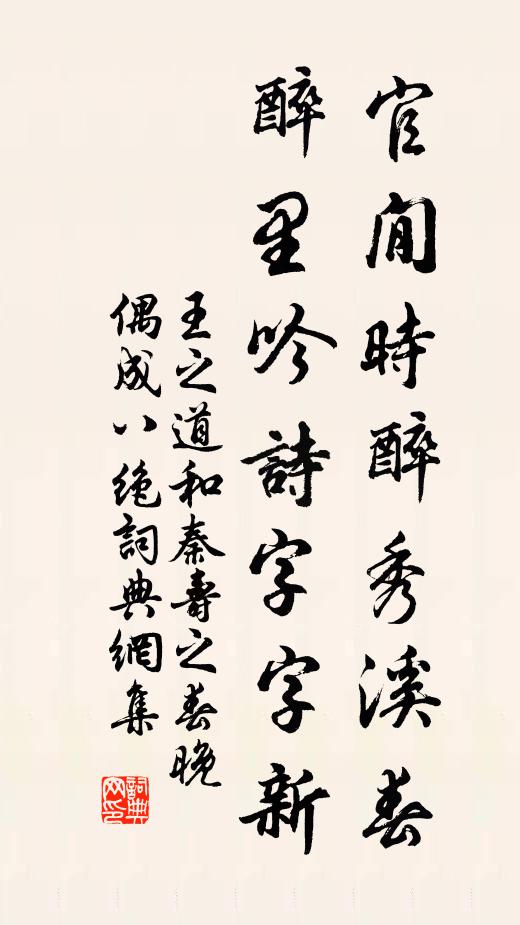 官閒時醉秀溪春
醉里吟詩字字新
王之道和秦壽之春晚
偶成八绝詞典網集
詞典
网印